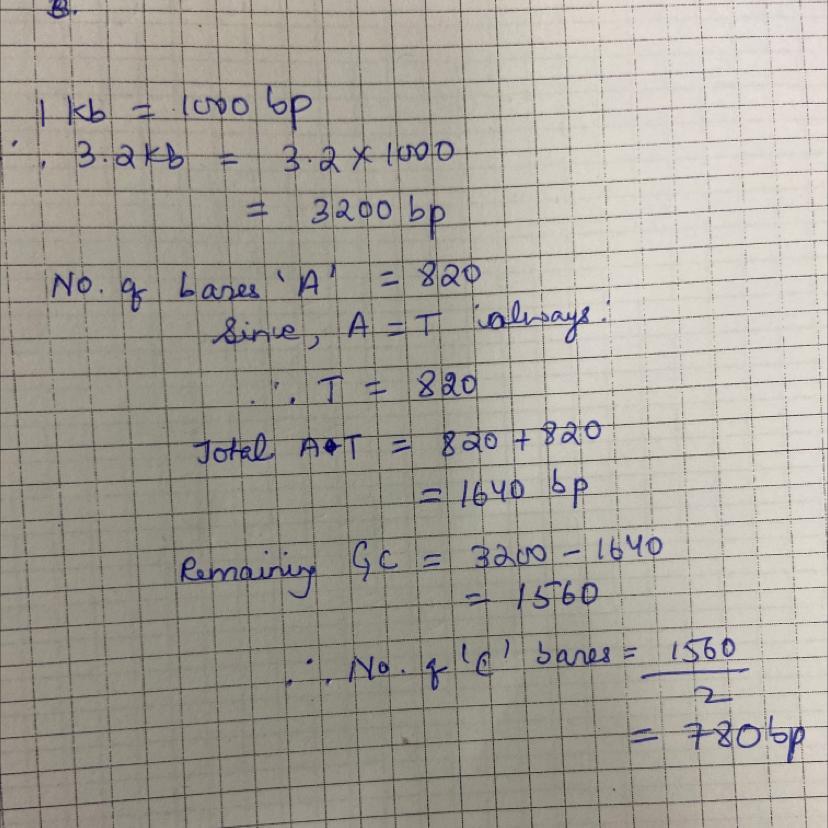 B.
1 kb = 1000 bp
∴ 3.2kb = 3.2 × 1000
= 3200 bp
No. of bases 'A' = 820
Since, A = T always.
∴ T = 820
Total A+T = 820 + 820
= 1640 bp
Remaining GC = 3200 - 1640
= 1560
∴ No. of 'C' bases = 1560
2
= 780 bp